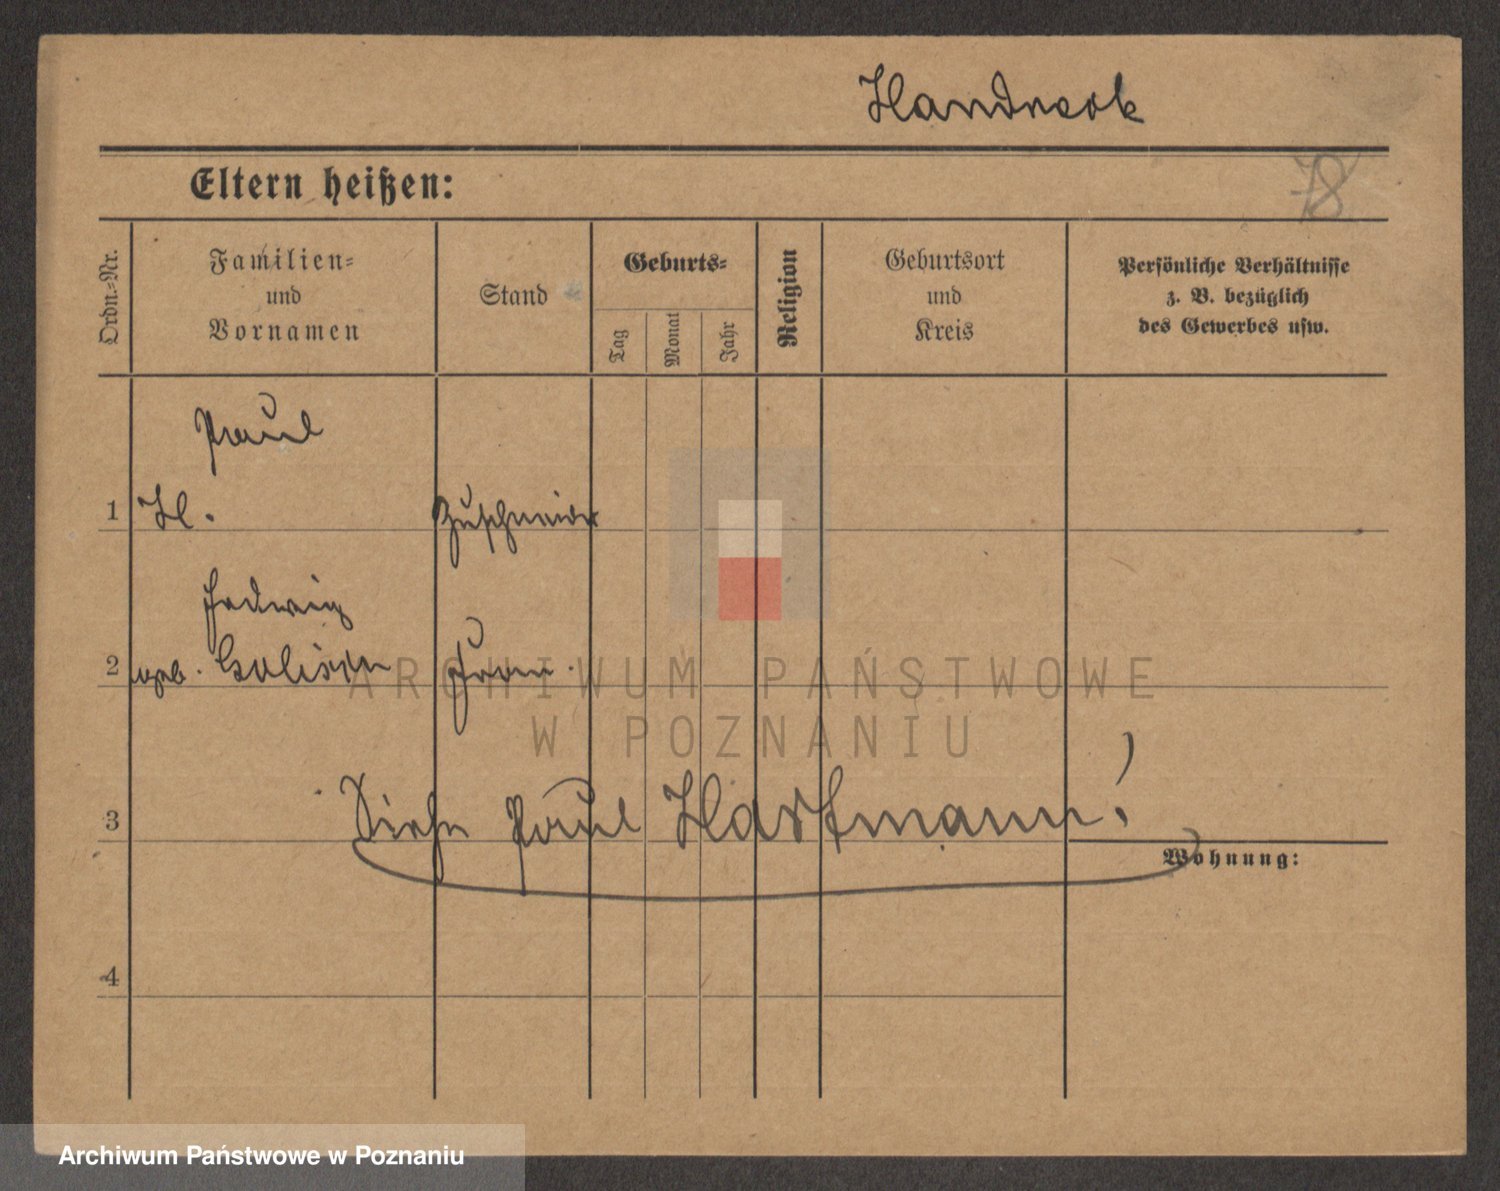 Handreck
Eltern heißen:
78
Ordn.-Nr.
Familien-
und
Vornamen
Stand
Geburts-
Tag
Monat
Jahr
Religion
Geburtsort
und
Kreis
Persönliche Verhältnisse
z. B. bezüglich
des Gewerbes usw.
Paul
1 H. Zuschneider
Hedwig
2 geb. Frau.
ARCHIWUM PAŃSTWOWE
W POZNANIU
3 Siehe Paul Hartmann!
Wohnung:
4
Archiwum Państwowe w Poznaniu